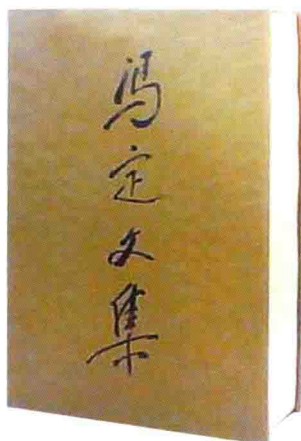 冯定文集